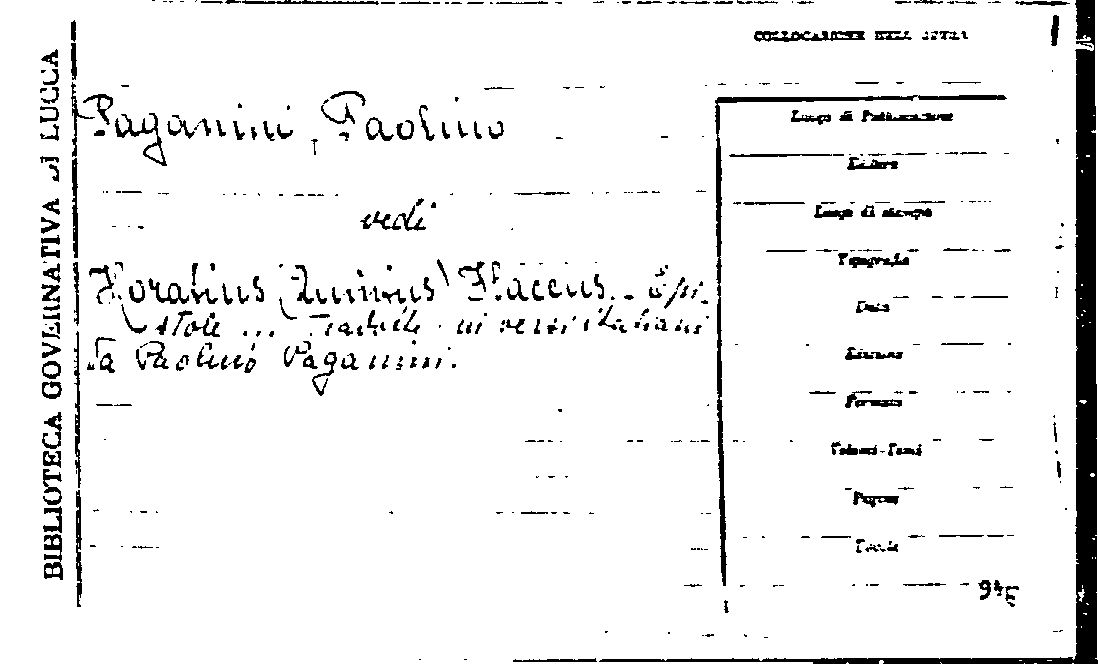 BIBLIOTECA GOVERNATIVA DI LUCCA
COLLOCAZIONE DELL'OPERA
Paganini, Paolino
vedi
Horatius (Quintus) Flaccus. - Epi-
stole ... Tradotte in versi italiani
da Paolino Paganini.
Luogo di Pubblicazione
Editore
Luogo di stampa
Tipografia
Data
Edizione
Formato
Volumi-Tomi
Pagine
Tavole